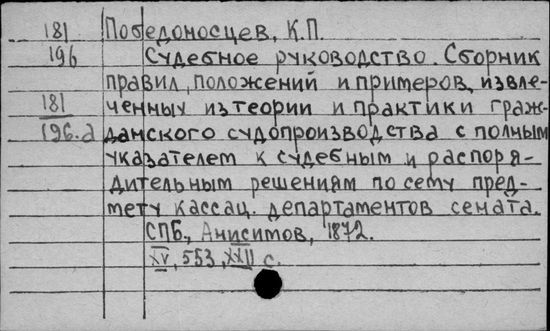 181 Победоносцев, К.П.
196 Судебное руководство. Сборник
правил, положений и примеров, извле-
181 ченных из теории и практики граж-
196.а данского судопроизводства с полным
указателем к судебным и распоря-
дительным решениям по сему пред-
мету кассац. департаментов сената.
СПБ., Анисимов, 1872.
XV, 553, XXII с.